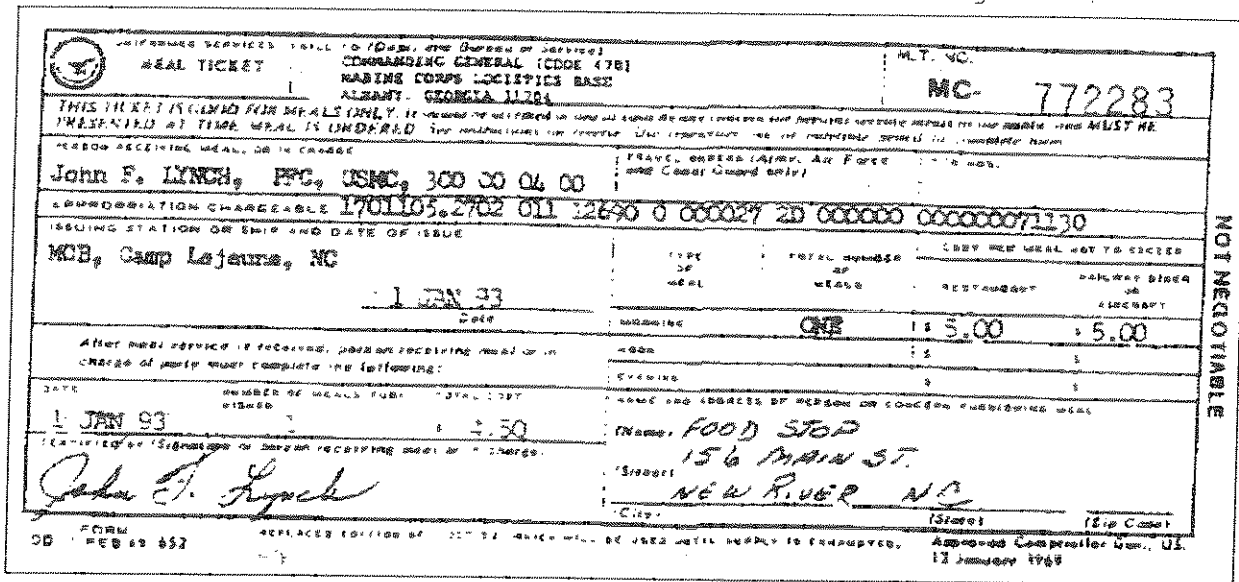 UNIFORMED SERVICES
MEAL TICKET
BILL TO (Dept. and Bureau or Service)
COMMANDING GENERAL (CODE 47B)
MARINE CORPS LOGISTICS BASE
ALBANY, GEORGIA 31704
M.T. NO.
MC- 772283
THIS TICKET IS GOOD FOR MEALS ONLY.
MUST BE
PRESENTED AT TIME MEAL IS ORDERED.
PERSON RECEIVING MEAL, OR IN CHARGE
John F. LYNCH, PFC, USMC, 300 00 04 00
TRAVEL ORDERS (Army, Air Force
and Coast Guard only)
APPROPRIATION CHARGEABLE 1701105.2702 011 12690 0 000027 2D 000000 000000071130
ISSUING STATION OR SHIP AND DATE OF ISSUE
MCB, Camp Lejeune, NC
1 JAN 93
Date
TYPE OF MEAL
TOTAL NUMBER OF MEALS
COST PER MEAL NOT TO EXCEED
RESTAURANT
RAILWAY DINER OR AIRCRAFT
MORNING ONE $ 5.00 $ 5.00
NOON $ $
EVENING $ $
After meal service is received, person receiving meal or in
charge of party must complete the following:
DATE
1 JAN 93
NUMBER OF MEALS FURNISHED
TOTAL COST
$ 4.50
CERTIFIED BY (Signature of person receiving meal or in charge)
John F. Lynch
NAME AND ADDRESS OF PERSON OR CONCERN FURNISHING MEAL
(Name) FOOD STOP
156 MAIN ST.
(Street)
NEW RIVER NC
(City) (State) (Zip Code)
DD FORM 652
FEB 69
REPLACES EDITION OF WHICH WILL BE USED UNTIL SUPPLY IS EXHAUSTED.
Approved Comptroller Gen., U.S.
13 January 1969
NOT NEGOTIABLE